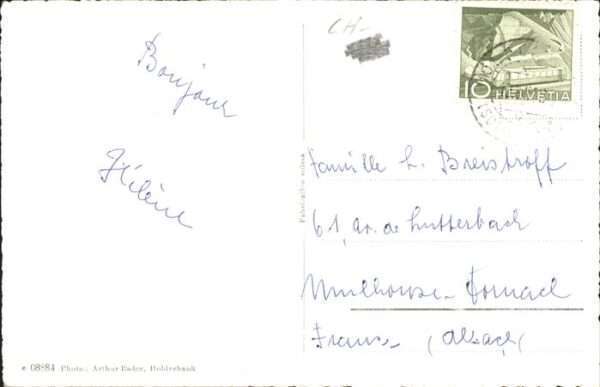 CH-
10 HELVETIA
Bonjour
Hélène
famille L. Breistroff
61, av. de Lutterbach
Mulhouse-Dornach
France (Alsace)
08884 Photo: Arthur Bader, Holderbank